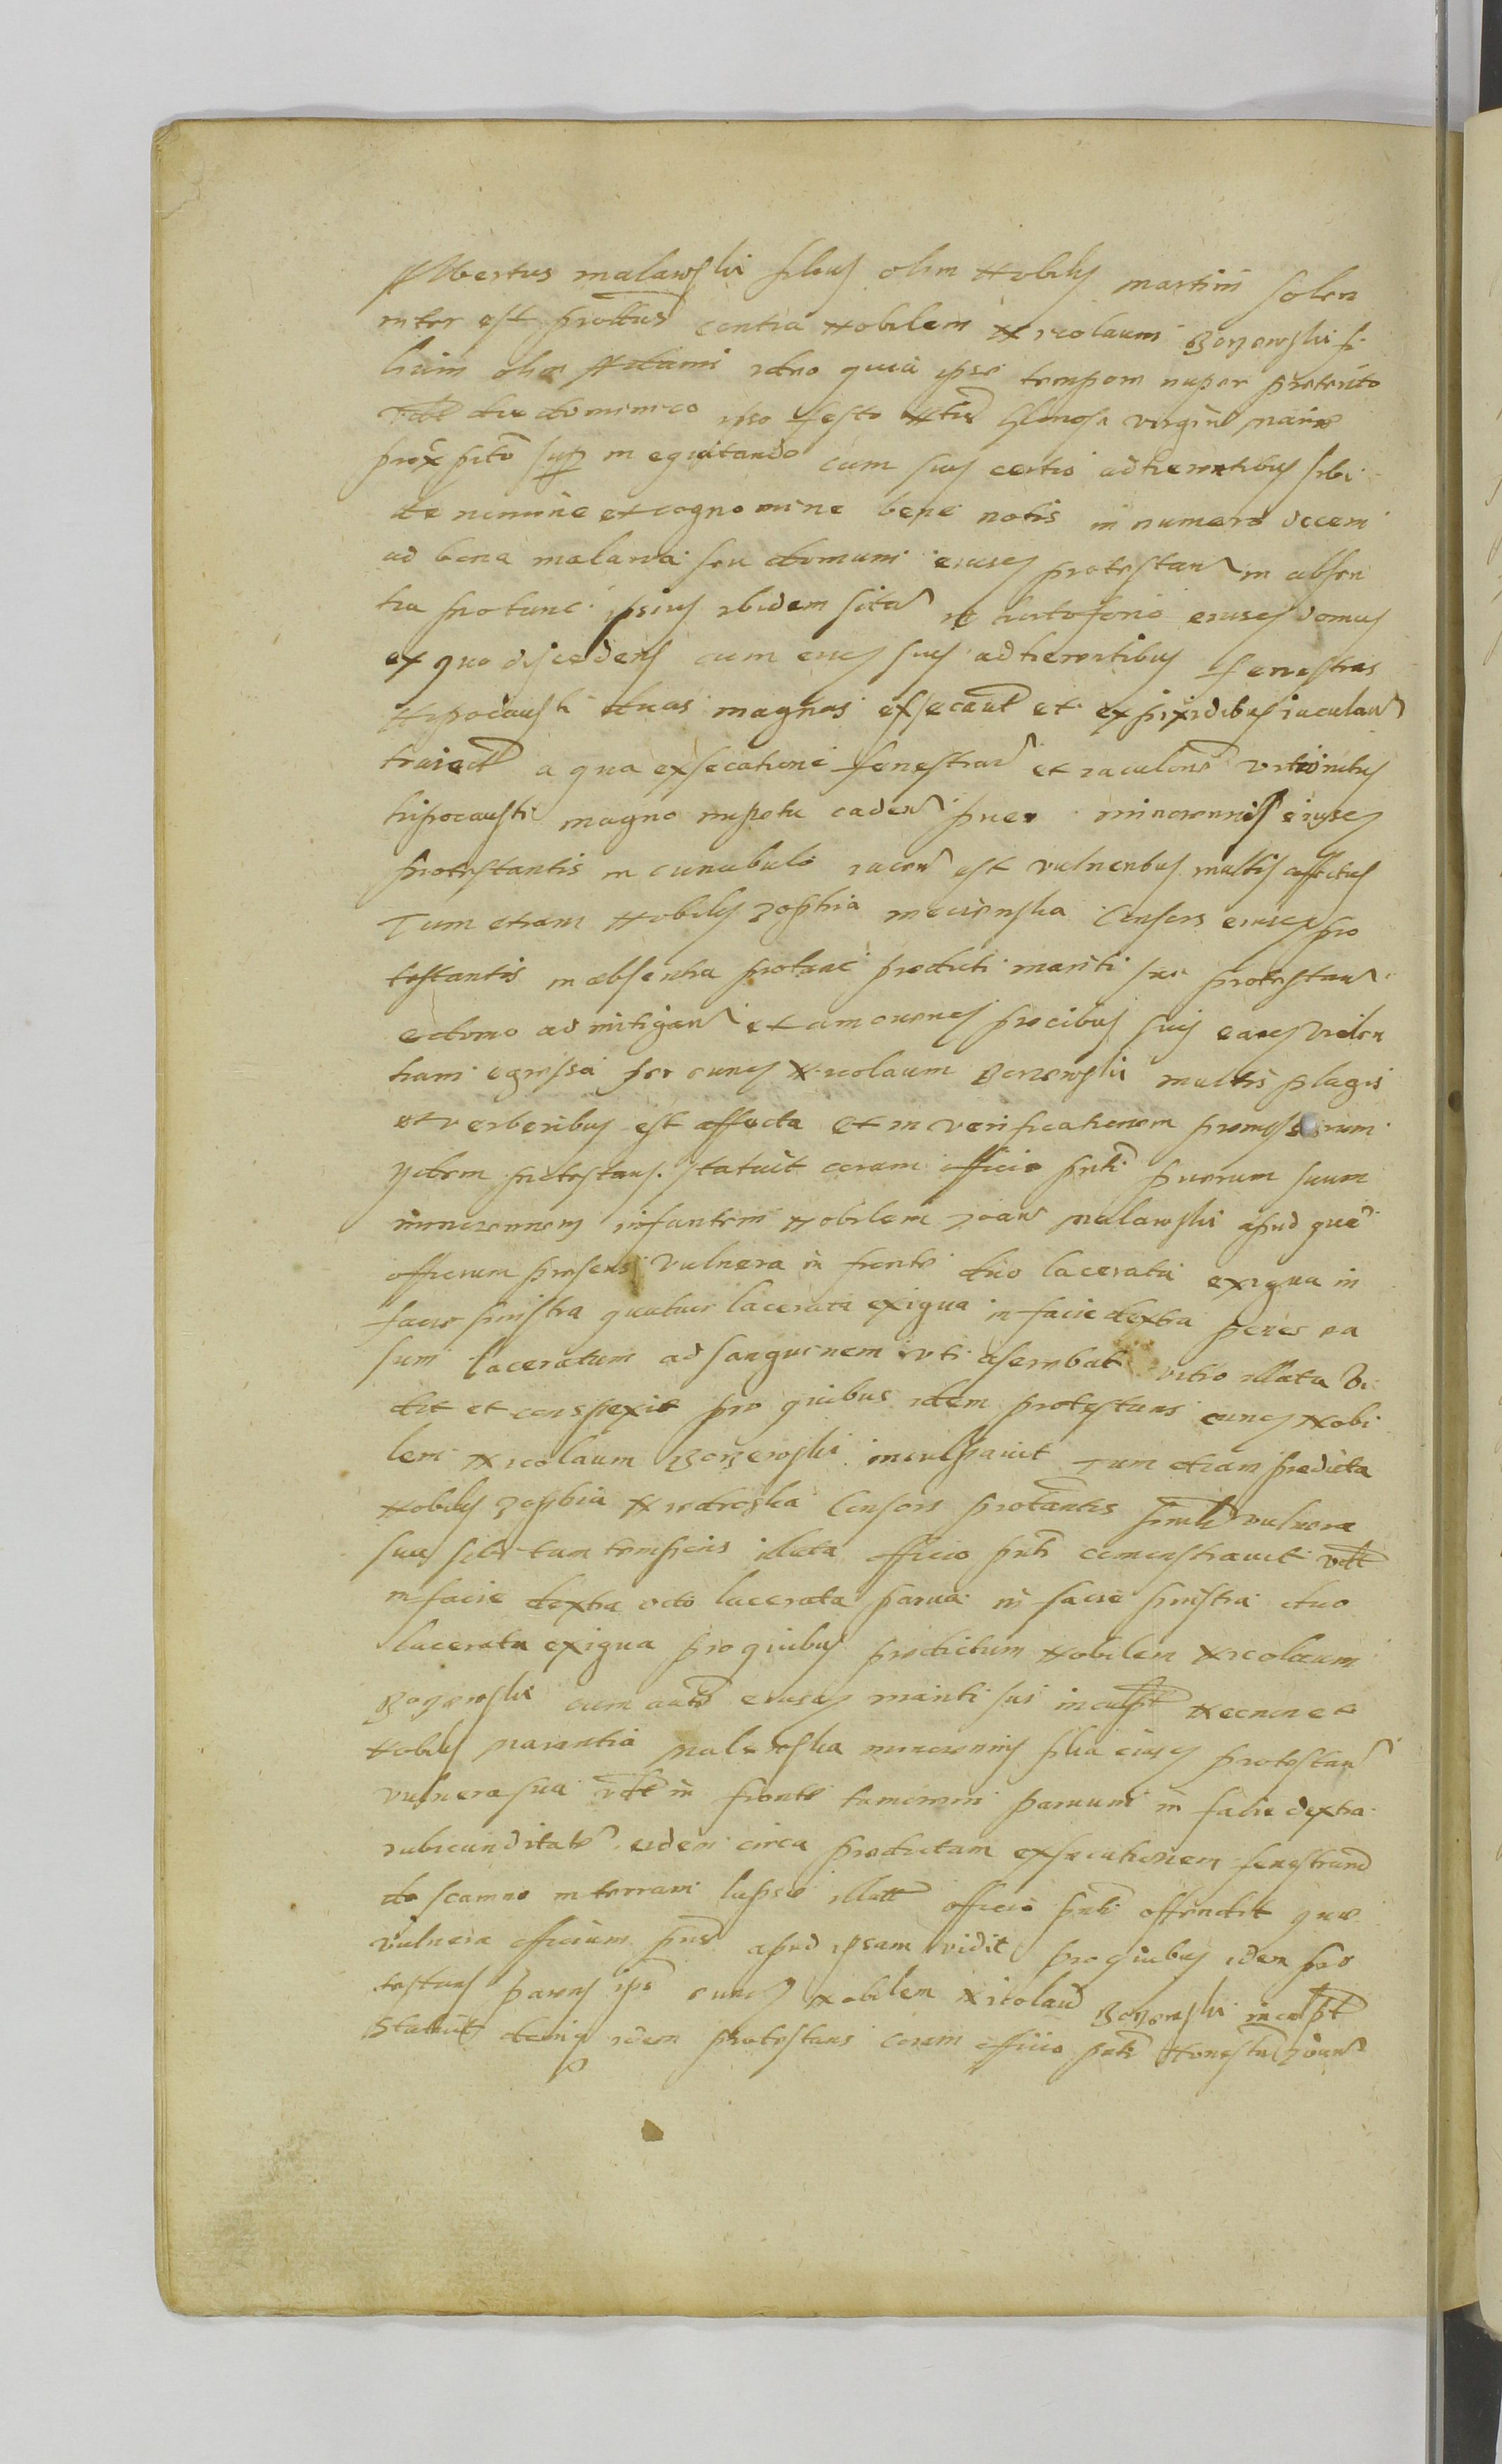 Albertus malawski filius olim Nobilis martini solen
niter est protestatus contra Nobilem Nicolaum Borzewski fi
lium olim Adami ideo quia ipse tempore nuper preterito
videlicet die dominico ipso festo Gloriose virginis marie
prox in equitando cum suis certis adherentibus sibi
de nomine et cognomine bene notis in numero decem
ad bona malawa seu domum eiusdem protestan in absen
tia protunc ipsius ibidem sita eiusdem domus
ex quo discedens cum eisdem suis adherentibus fenestras
Hypocausti duas magnas exsecarunt et ex pixidibus iaculan
traiect a qua exsecatione fenestrar et iaculone
hipocausti magno impetu caden puer minorennis eiusdem
protestantis in cunabulo iacen est vulneribus multis affectus
Tum etiam Nobilis zophia Consors eiusdem pro
testantis in absentia protunc predicti mariti sui protestan
e domo ad mitigan et amoven precibus suis eandem violen
tiam egressa per eundem Nicolaum Borzewski multis plagis
et verberibus est affecta Et in verificationem premissorum
idem protestans statuit coram officio pnti puerum suum
minorennem infantem Nobilem Joan malawski apud que
officium presens vulnera in fronte duo lacerata exigua in
facie sinistra quatuor lacerata exigua in facie dextra penes na
sum laceratum ad sanguinem uti asserebat vitro illata vi
dit et conspexit pro quibus idem protestans eundem Nobi
lem Nicolaum Borzewski inculpavit Tum etiam predicta
Nobilis zophia Consors protestantis vulnera
sua sibi illata officio pnti demonstravit vdlt
in facie dextra octo lacerata parva in facie sinistra duo
lacerata exigua pro quibus predictum Nobilem Nicolaum
Borzewski cum eiusdem mariti sui inculpt Necnon et
Nobilis malewska minorennis filia eiusdem protestan
vulnera sua vdlt in fronte tumorem parvum in facie dextra
rubicunditate eidem circa predictam exsecutionem fenestrarum
de scamno in terram lapse illatt officio pnti ostendit que
vulnera officium pns apud ipsam vidit pro quibus idem pro
testans parens eundem Nobilem Nicolaum Borzewski inculpt
Statuit idem protestans coram officio pnti Honestu Joan